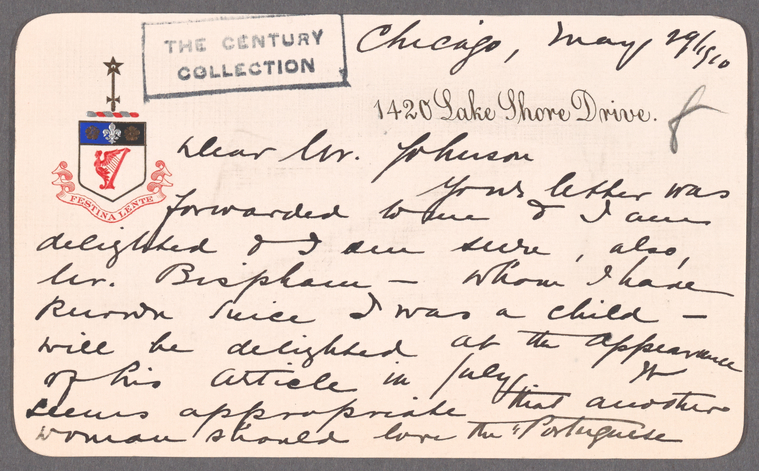 THE CENTURY
COLLECTION
Chicago, May 29/1910
1420 Lake Shore Drive.
8
FESTINA LENTE
Dear Mr. Johnson
Your letter was
forwarded to me & I am
delighted & I am sure, also,
Mr. Bispham — whom I have
known since I was a child —
will be delighted at the appearance
of his article in July. It
seems appropriate that another
woman should love the "Portuguese